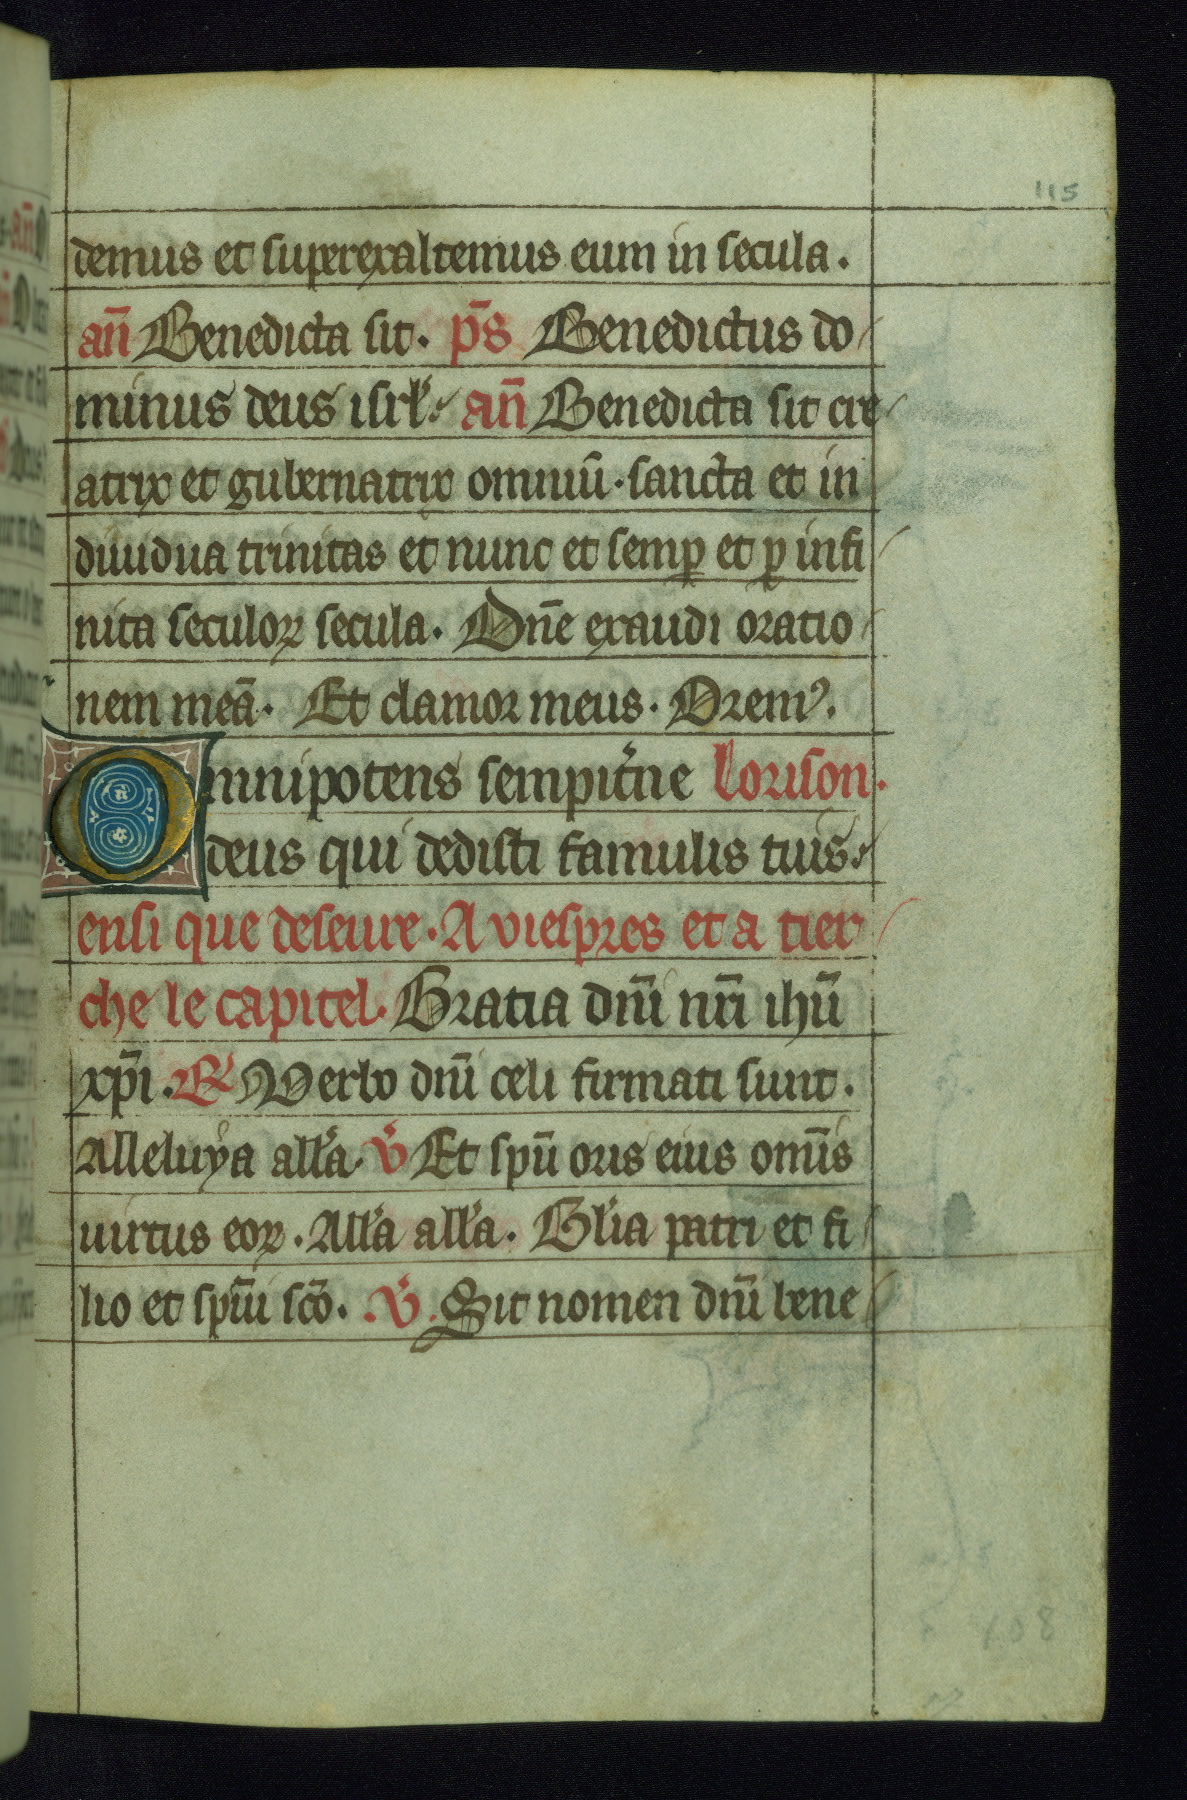 115
demus et superexaltemus eum in secula.
an̄ Benedicta sit. p̄s Benedictus do
minus deus isrl̓. an̄ Benedicta sit cre
atrix et gubernatrix omniū. sancta et in
diuidua trinitas et nunc et semꝑ et ꝑ infi
nita seculoꝝ secula. Dn̄e exaudi oratio
nem meā. Et clamor meus. Orem᷒.
Omnipotens sempit̓ne lorison.
deus qui dedisti famulis tuis.
ensi que deseure. A viespres et a tier
che le capitel. Gratia dn̄i nr̄i ihū
xp̄i. R̓ Verbo dn̄i celi firmati sunt.
Alleluya all̓a. v̓ Et spū oris eius om̄is
uirtus eoꝝ. All̓a all̓a. Gl̓ia patri et fi
lio et spūi sc̄o. v̓. Sit nomen dn̄i bene
108